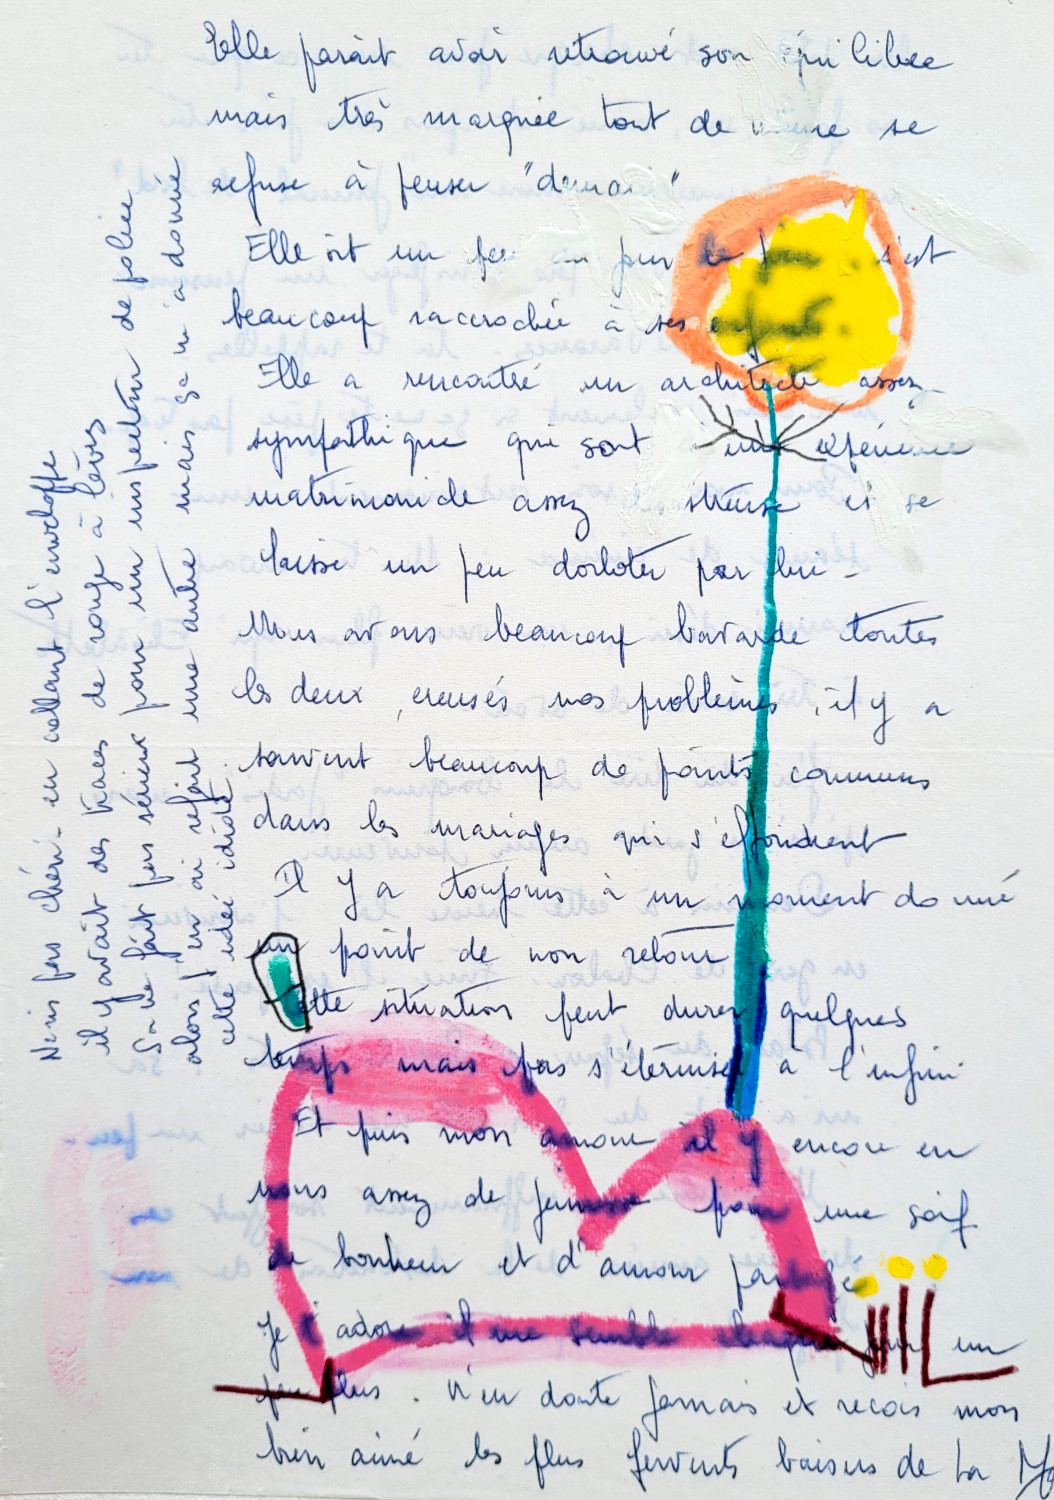 Elle parait avoir retrouvé son équilibre
mais très marquée tout de même se
refuse à penser "demain"
Elle vit un peu au jour le jour. s'est
beaucoup raccrochée à ses enfants.
Elle a rencontré un architecte assez
sympathique qui sort une expérience
matrimoniale assez et se
laisse un peu dorloter par lui -
Nous avons beaucoup bavardé toutes
les deux, creusés nos problèmes, il y a
souvent beaucoup de points communs
dans les mariages qui s'effondrent
Il y a toujours à un moment donné
un point de non retour
Cette situation peut durer quelques
temps mais pas s'éterniser à l'infini
Et puis mon amour il y encore en
nous assez de jeunesse pour une soif
de bonheur et d'amour partagé
Je t'adore il me semble chaque jour un
peu plus. N'en doute jamais et reçois mon
bien aimé les plus fervents baisers de ta
Nenis pas chéri - en collant l'enveloppe
il y avait des traces de rouge à lèvres
Sa ne fait pas sérieux pour un inspecteur de police
alors j'en ai refait une autre mais sa m'a donné
cette idée idiote.